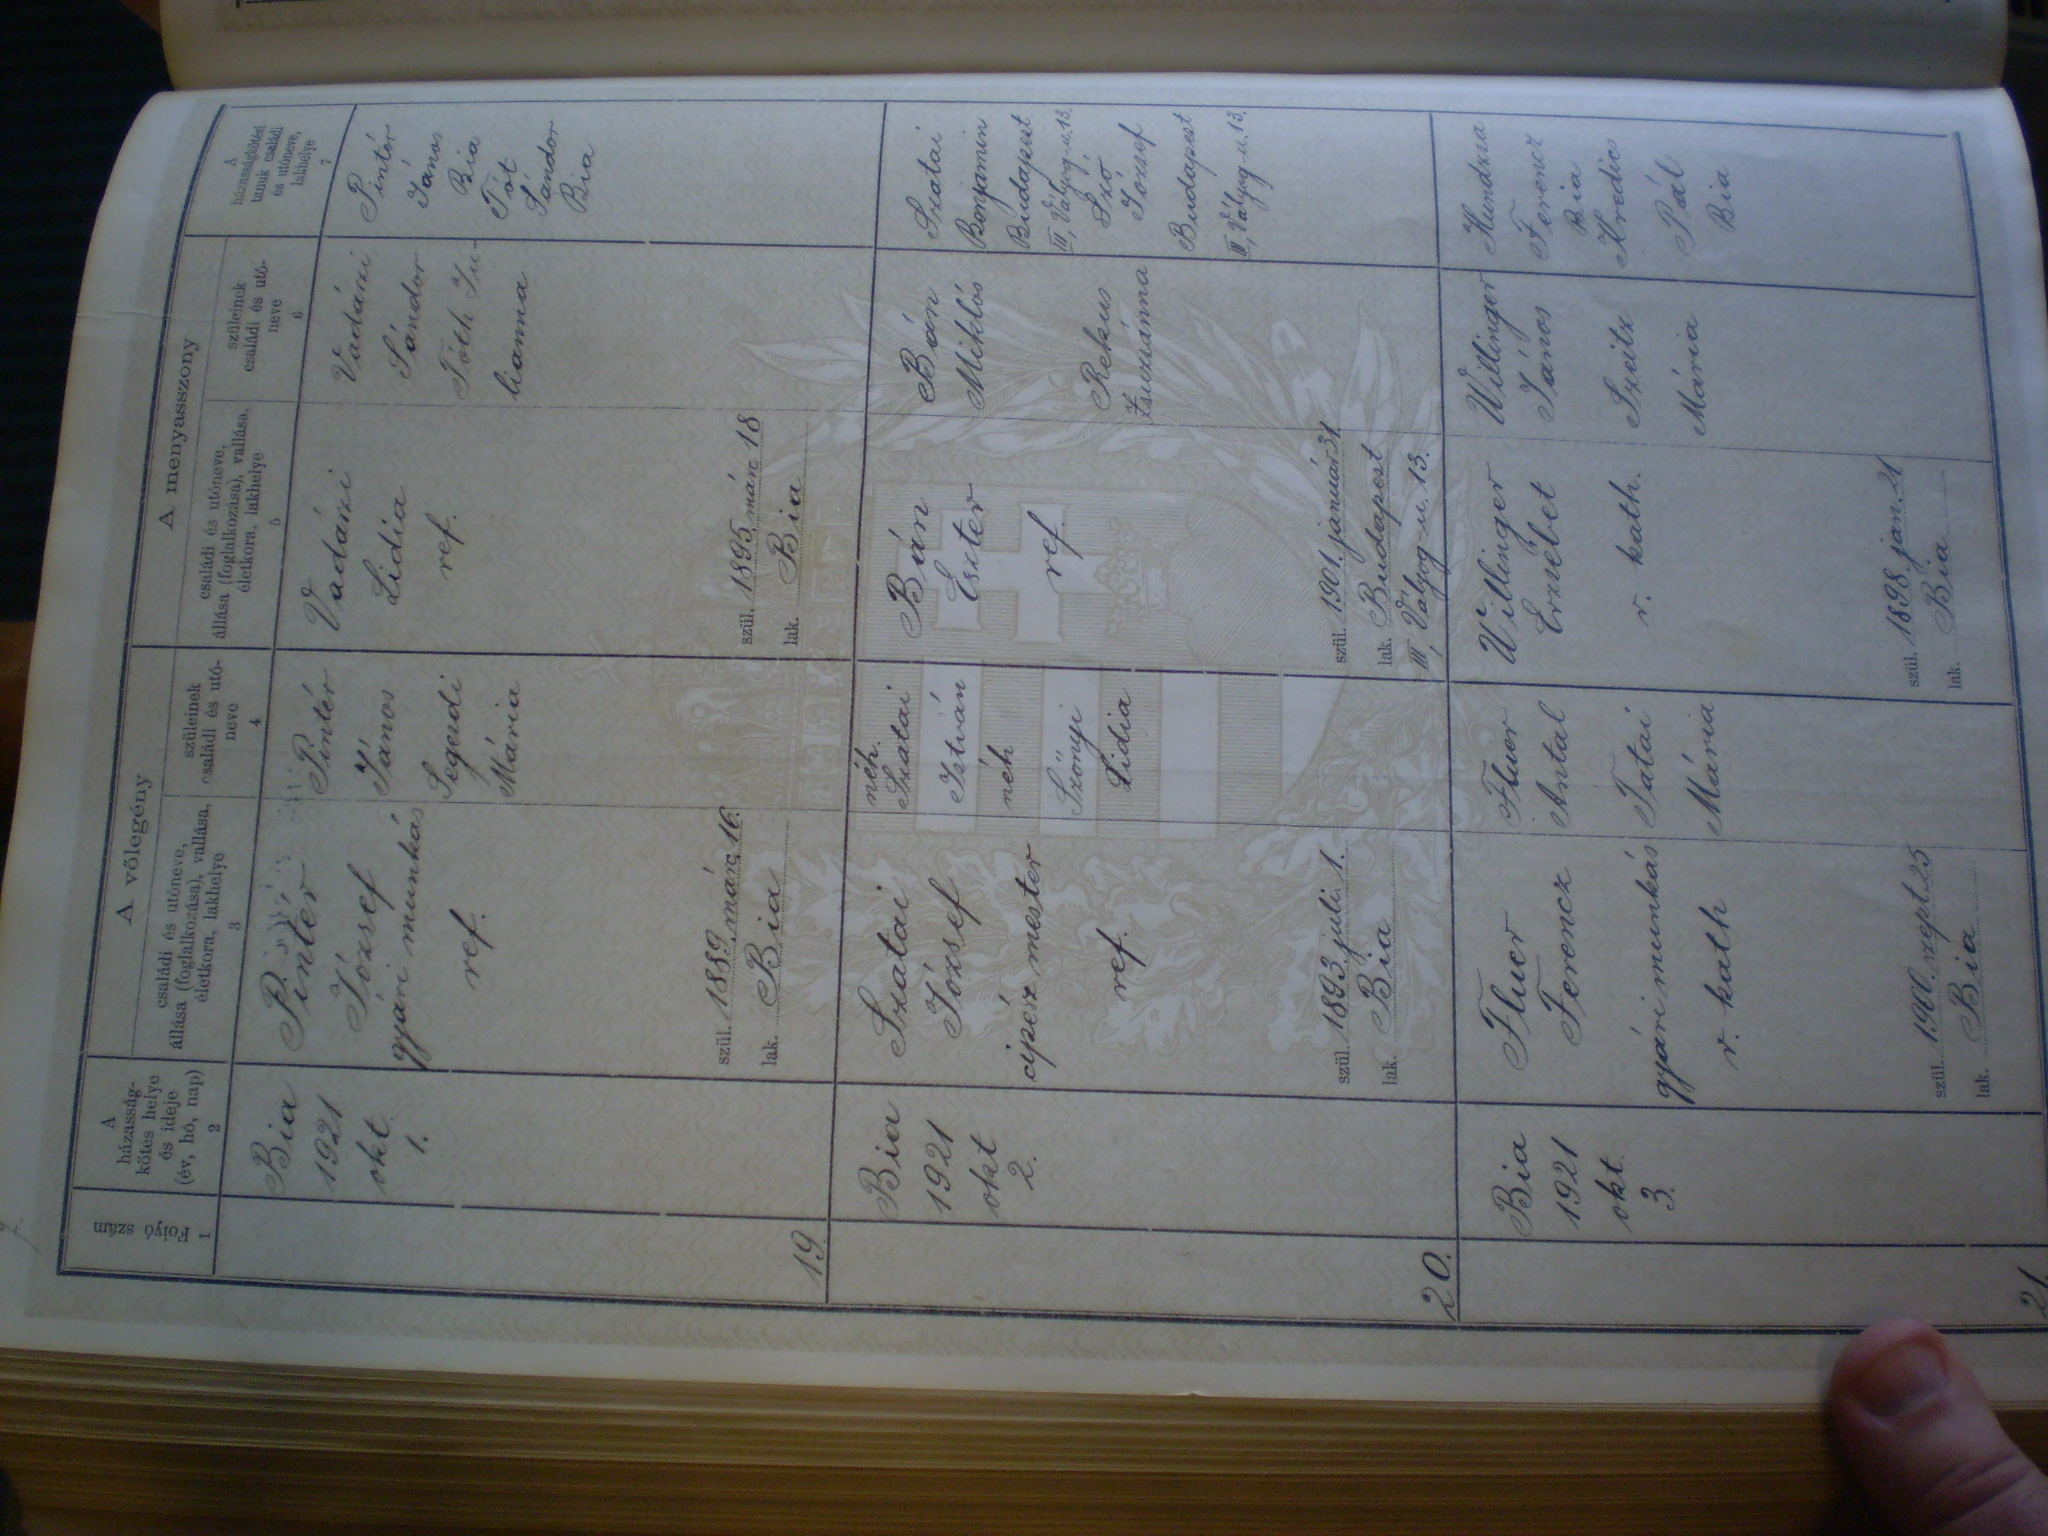 Folyó szám
1
A
házasság-
kötés helye
és ideje
(év, hó, nap)
2
A vőlegény
családi és utóneve,
állása (foglalkozása), vallása,
életkora, lakhelye
3
szüleinek
családi és utó-
neve
4
A menyasszony
családi és utóneve,
állása (foglalkozása), vallása,
életkora, lakhelye
5
szüleinek
családi és utó-
neve
6
A
házasságkötési
tanuk családi
és utóneve,
lakhelye
7
19.
Bia
1921
okt.
1.
Pintér
József
gyári munkás
ref.
szül. 1889. márc. 16.
lak. Bia
Pintér
János
Segesdi
Mária
Vadáni
Lidia
ref.
szül. 1895. márc. 18
lak. Bia
Vadáni
Sándor
Tóth Ju-
lianna
Pintér
János
Bia
Tót
Sándor
Bia
20.
Bia
1921
okt
2.
Szatai
József
cipész mester
ref.
szül. 1893. juli. 1.
lak. Bia
néh.
Szatai
István
néh
Szőnyi
Lidia
Bán
Eszter
ref.
szül. 1901. január 31.
lak. Budapest
III, Vályog-u. 13.
Bán
Miklós
Rekus
Zsuzsánna
Szatai
Benjamin
Budapest
III, Vályog-u. 13.
Sző
József
Budapest
III, Vályog-u. 13.
21.
Bia
1921
okt.
3.
Fluer
Ferencz
gyári munkás
r. kath
szül. 1900. szept. 25
lak. Bia
Fluer
Antal
Tatai
Mária
Willinger
Erzsébet
r. kath.
szül. 1898. jan. 21
lak. Bia
Willinger
János
Szeitz
Mária
Hundzsa
Ferencz
Bia
Hredics
Pál
Bia